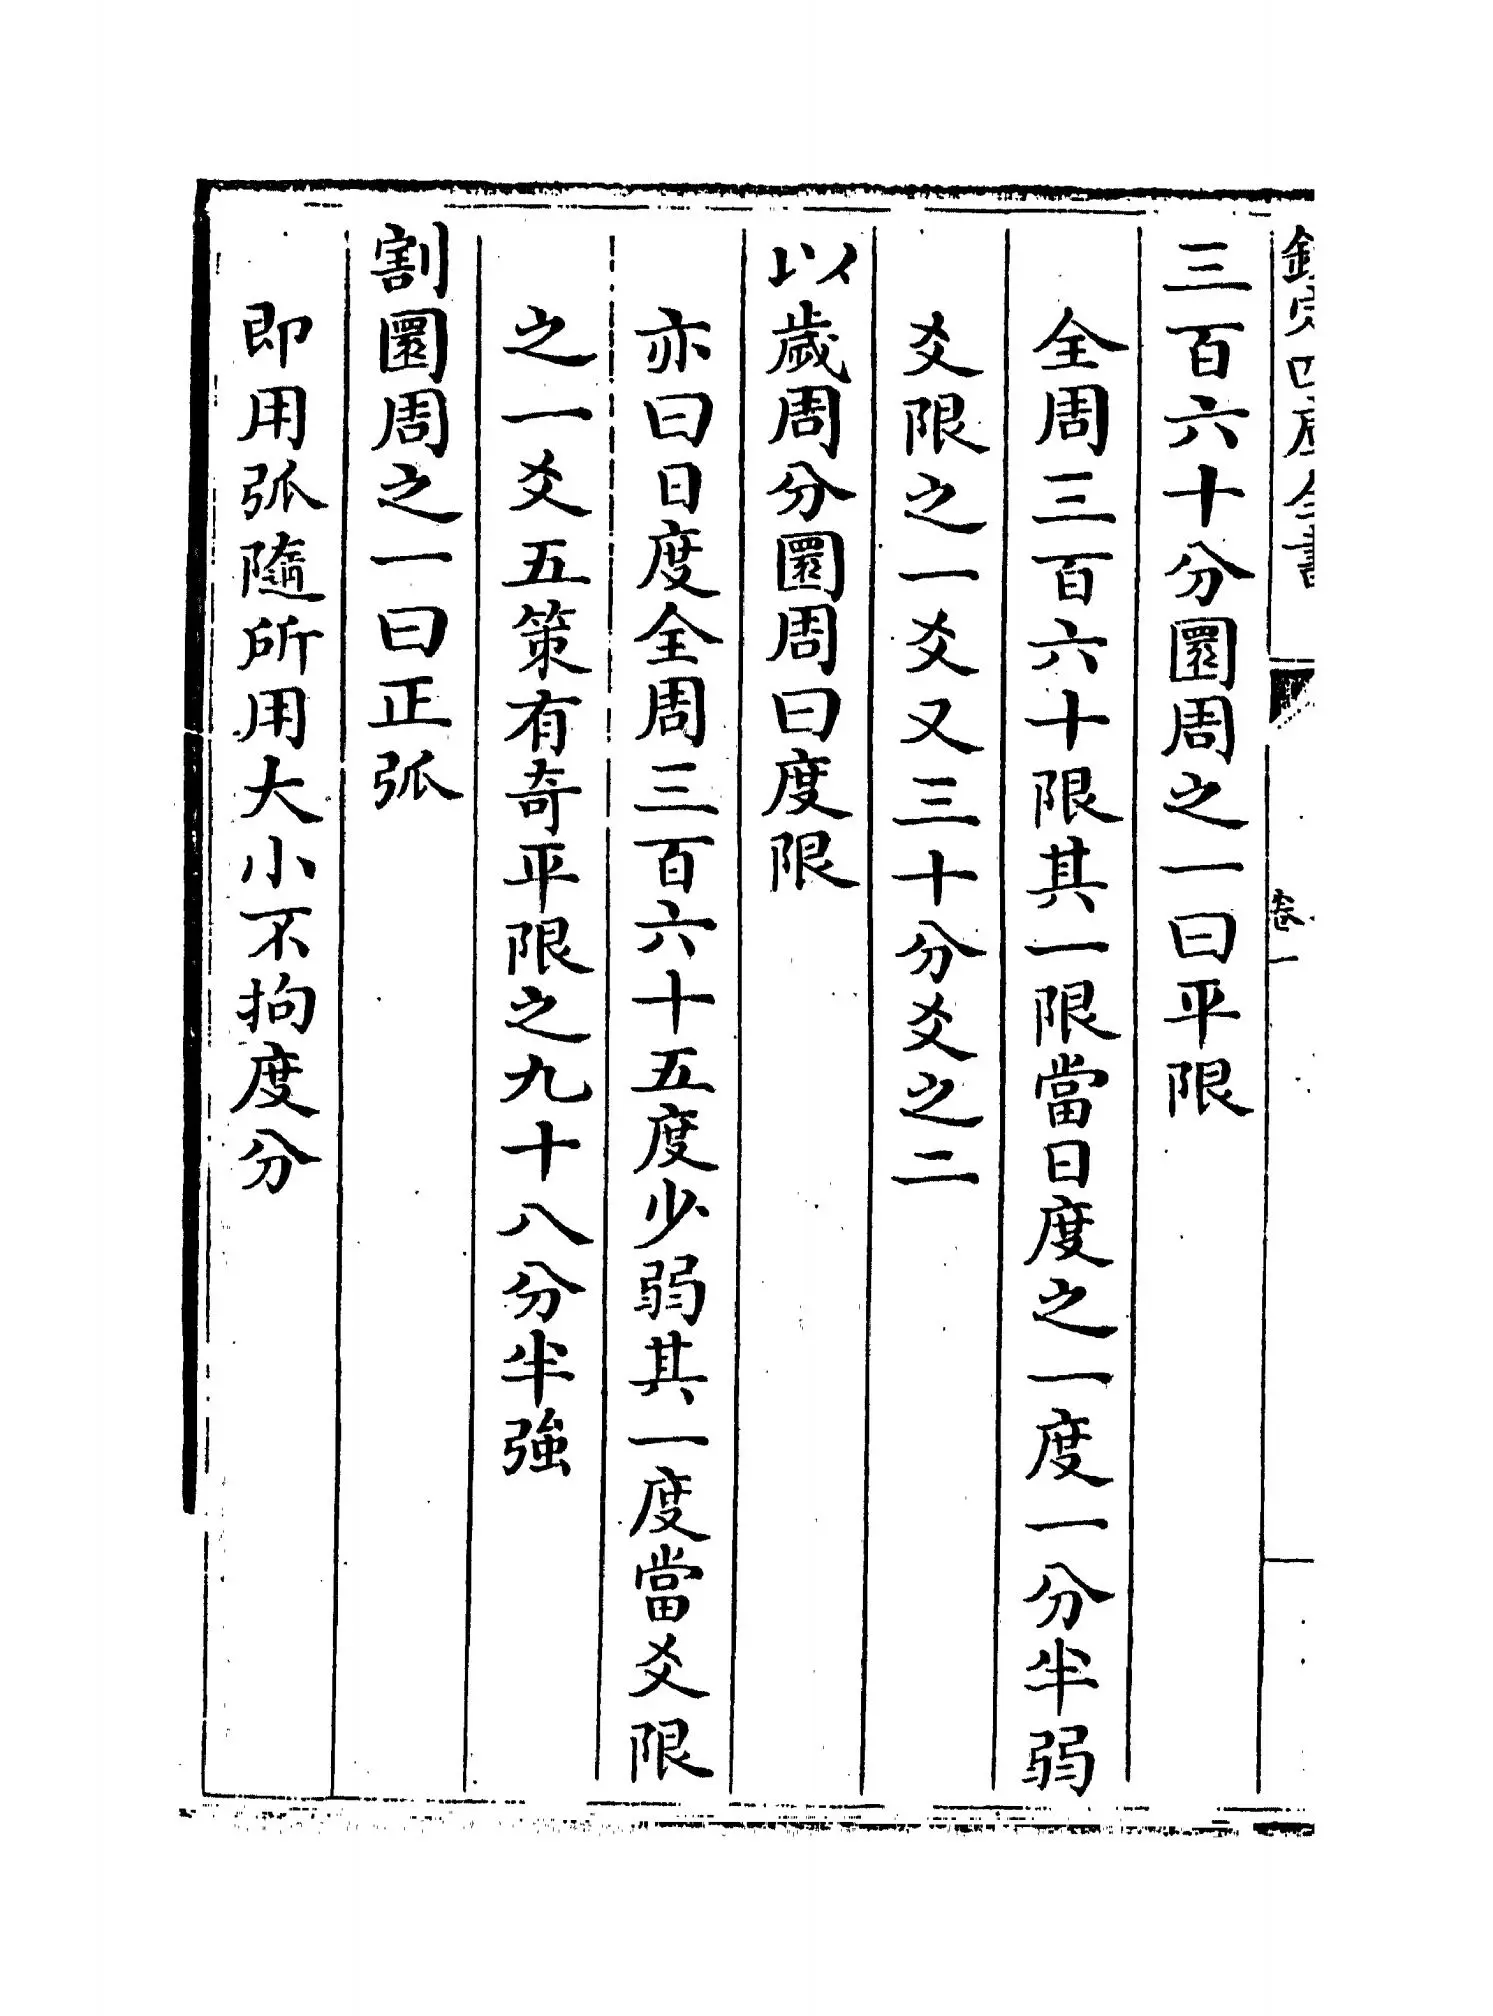 欽定四庫全書
卷一
三百六十分圜周之一曰平限
全周三百六十限其一限當日度之一度一分半弱
爻限之一爻又三十分爻之二
以歲周分圜周曰度限
亦曰日度全周三百六十五度少弱其一度當爻限
之一爻五策有奇平限之九十八分半強
割圜周之一曰正弧
即用弧隨所用大小不拘度分